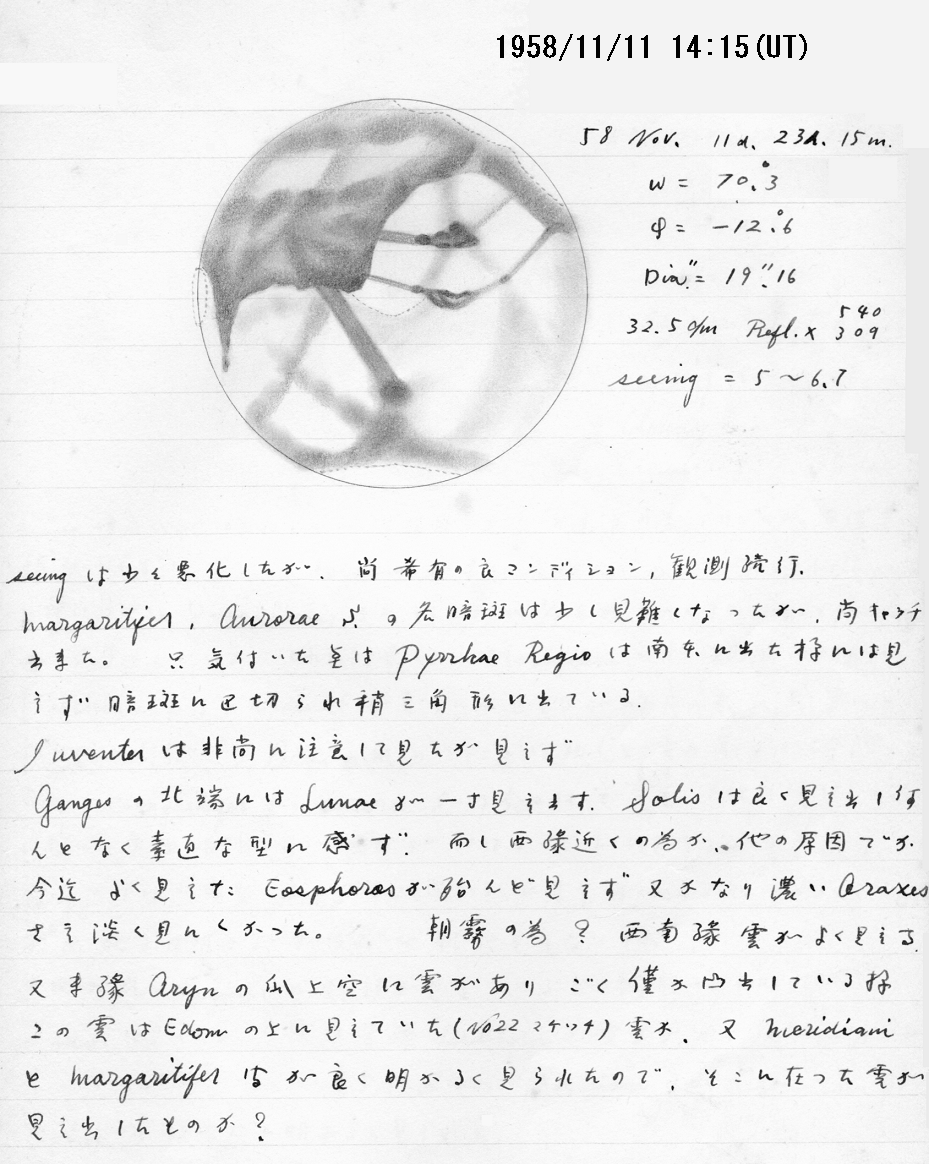 1958/11/11 14:15(UT)
58 Nov. 11d. 23h. 15m.
ω = 70.°3
φ = -12.°6
Dia." = 19."16
32.5 c/m Refl. × 540
309
seeing = 5~6.7
seeingは少々悪化したが、尚希有の良コンディション,観測続行.
margaritifer, Auroraeの各暗斑は少し見難くなったが,尚キャッチ
出来た。 只気付いた点は Pyrrhae Regio は南東に出た様には見
えず暗斑に区切られ稍三角形に出ている.
Juventaeは非常に注意して見たが見えず
Gangesの北端にはLunaeが一寸見え出す. Solisは良く見え出し何
んとなく素直な型に感ず. 而し西縁近くの為か、他の原因でか
今迄よく見えた Eosphorosが殆んど見えず又かなり濃いAraxes
さえ淡く見にくかった。 朝霧の為? 西南縁雲がよく見える.
又東縁 Arynの上空に雲があり ごく僅か凸出している様
この雲はEdomの上に見えていた(No22スケッチ)雲か. 又 meridiani
と margaritifer 間が良く明かるく見られたので,そこに在った雲が
見え出したものか?